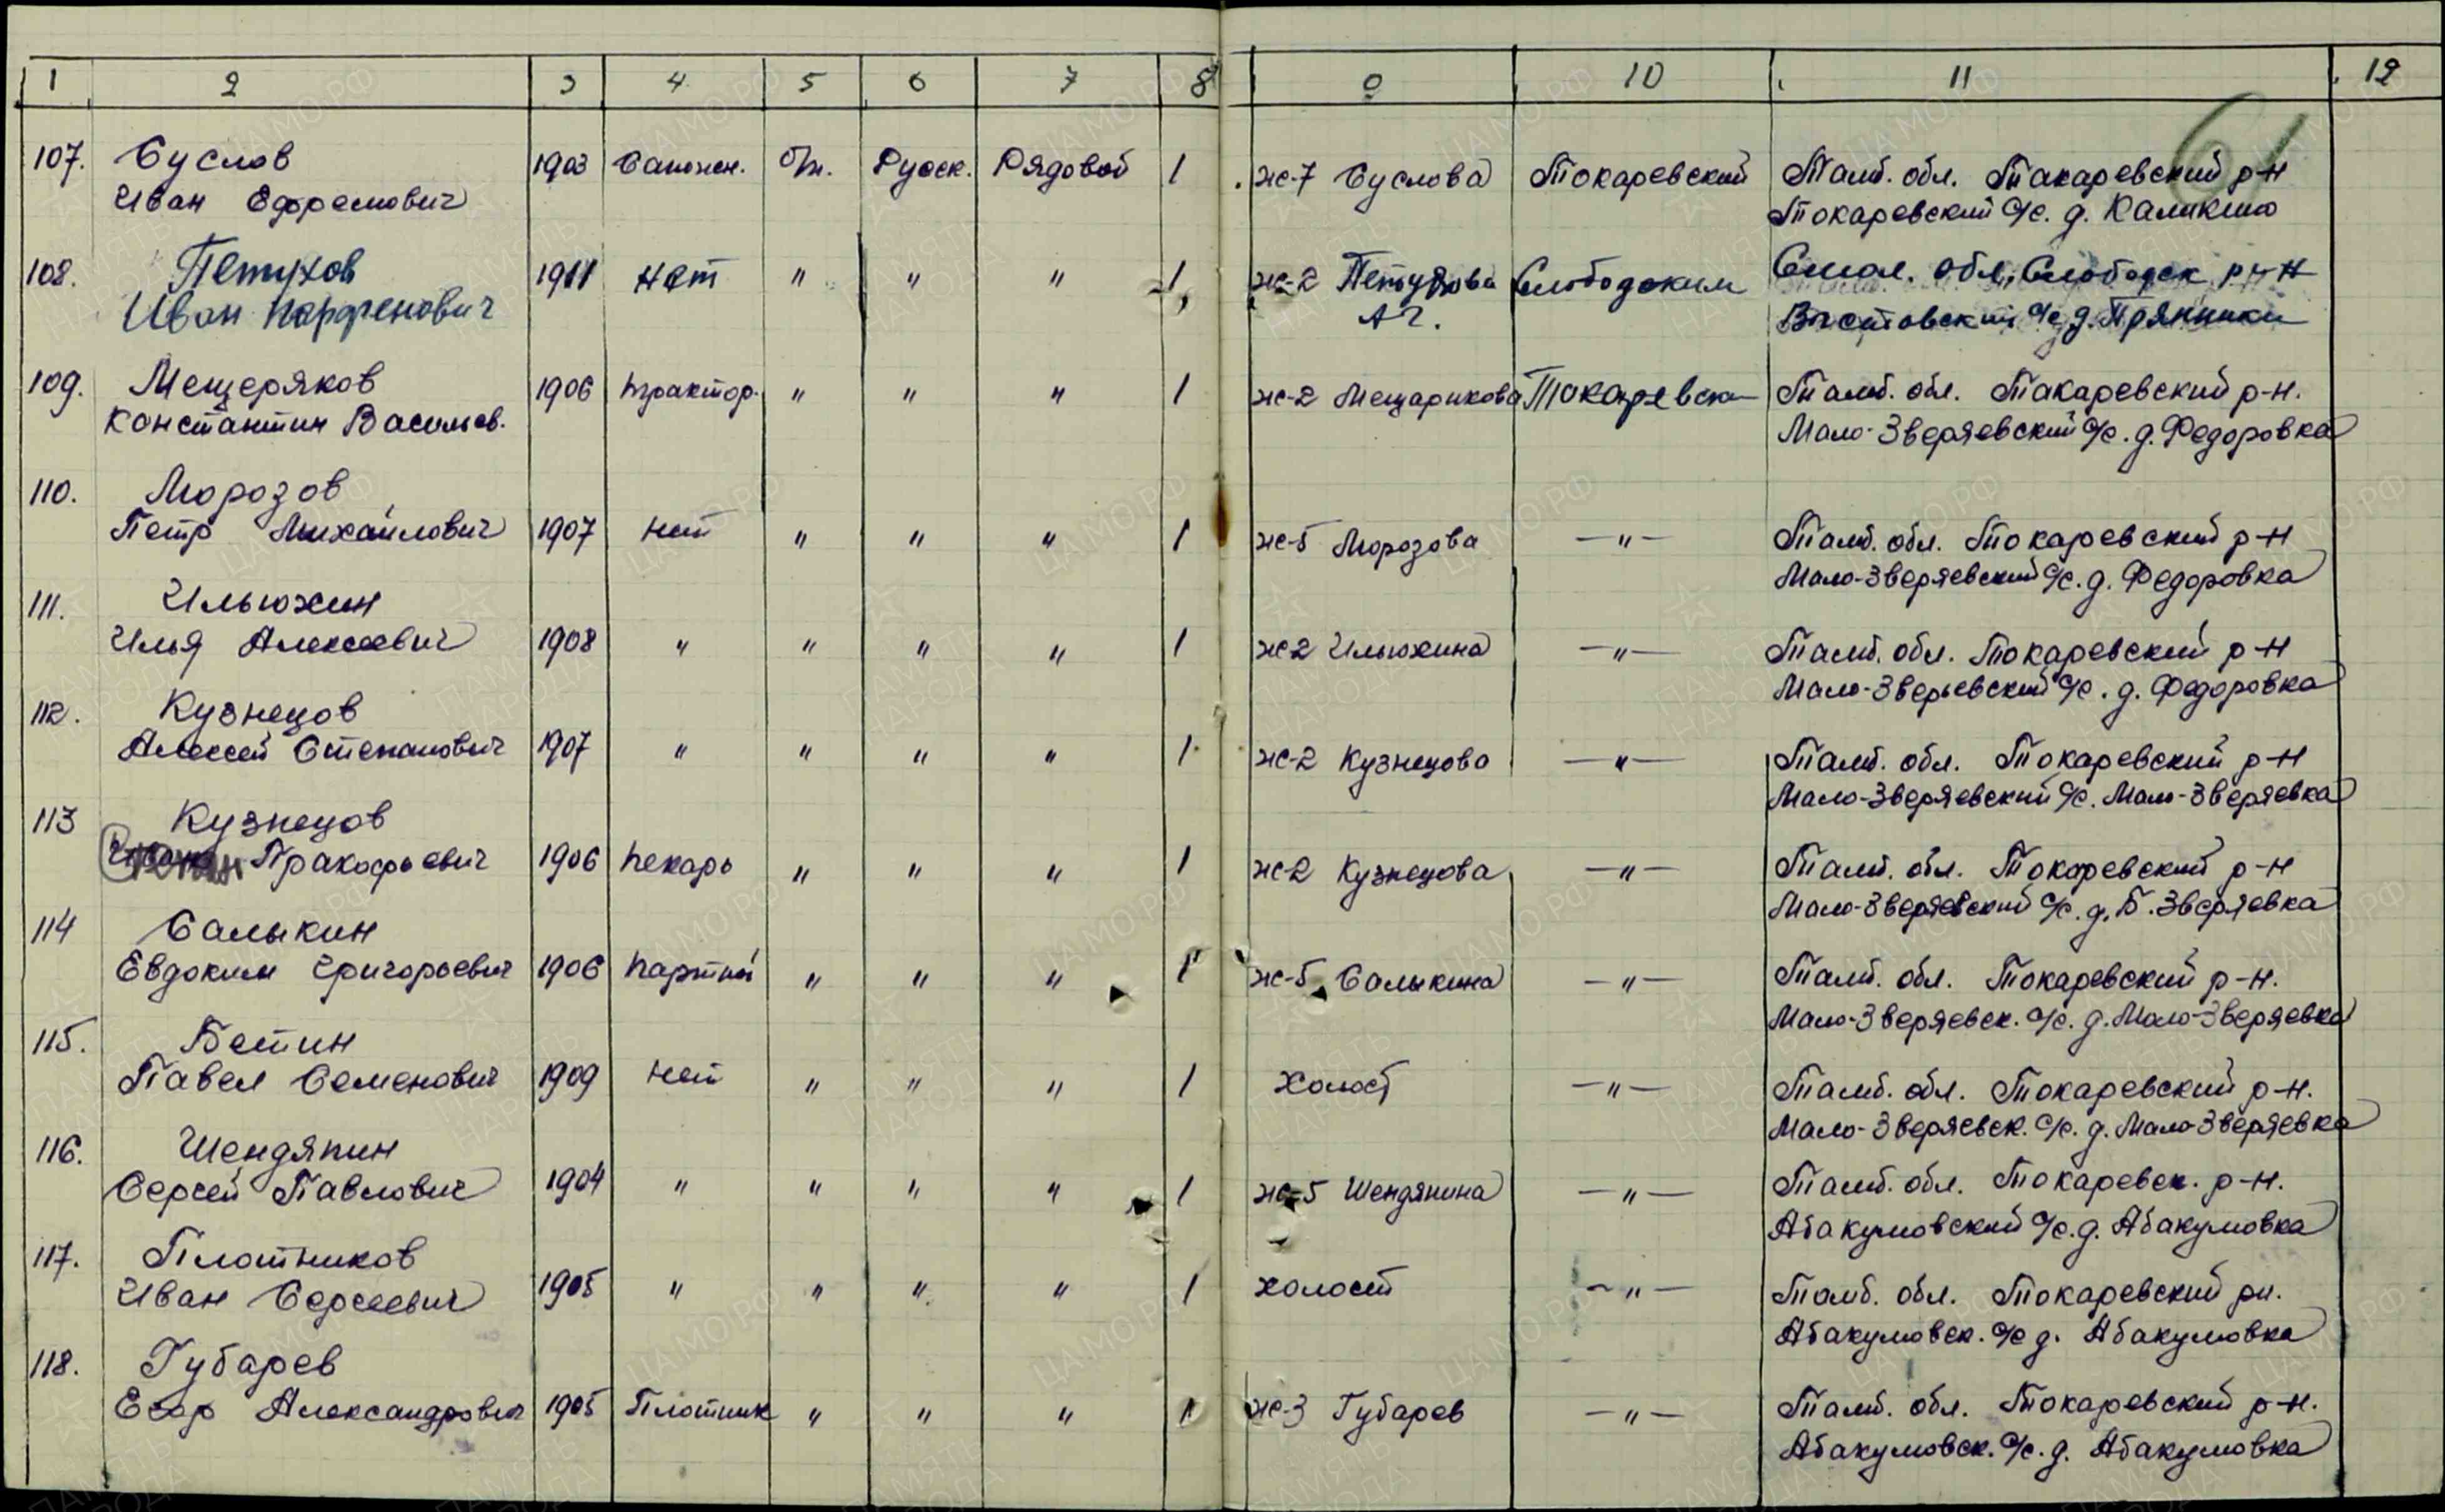 1 2 3 4 5 6 7 8 9 10 11 12
61
107. Суслов 1903 Сапожн. б/п. Русск. Рядовой 1 ж-7 Суслова Токаревский Тамб. обл. Такаревский р-н
Иван Ефремович Токаревский с/с. д. Каликино
108. Петухов 1911 нет " " " 1 ж-2 Петухова Слободским Смол. обл. Слободск р-н
Иван Парфенович А Г. с/с д. Пряники
109. Мещеряков 1906 трактор. " " " 1 ж-2 Мещарикова Токаревск Тамб. обл. Такаревский р-н.
Константин Васильев. Мало-Зверяевский с/с. д. Федоровка
110. Морозов
Петр Михайлович 1907 нет " " " 1 ж-5 Морозова —"— Тамб. обл. Токаревский р-н
Мало-Зверяевский с/с. д. Федоровка
111. Ильюхин
Илья Алексеевич 1908 " " " " 1 ж-2 Ильюхина —"— Тамб. обл. Токаревский р-н
Мало-Зверьевский с/с. д. Федоровка
112. Кузнецов
Алексей Степанович 1907 " " " " 1 ж-2 Кузнецова —"— Тамб. обл. Токаревский р-н
Мало-Зверяевский с/с. Мало-Зверяевка
113 Кузнецов
Пракофьевич 1906 пекарь " " " 1 ж-2 Кузнецова —"— Тамб. обл. Токаревский р-н
Мало-Зверяевский с/с. д. Б. Зверяевка
114 Салыкин
Евдоким Григорьевич 1906 партной " " " 1 ж-5 Салыкина —"— Тамб. обл. Токаревский р-н.
Мало-Зверяевск. с/с. д. Мало-Зверяевка
115. Бетин
Павел Семенович 1909 нет " " " 1 Холост —"— Тамб. обл. Токаревский р-н.
Мало-Зверяевск. с/с. д. Мало-Зверяевка
116. Шендяпин
Сергей Павлович 1904 " " " " 1 ж-5 Шендяпина —"— Тамб. обл. Токаревск. р-н.
Абакумовский с/с. д. Абакумовка
117. Плотников
Иван Сергеевич 1905 " " " " 1 холост —"— Тамб. обл. Токаревский рн.
Абакумовск. с/с д. Абакумовка
118. Губарев
Егор Александрович 1905 Плотник " " " 1 ж-3 Губарев —"— Тамб. обл. Токаревский р-н.
Абакумовск. с/с. д. Абакумовка